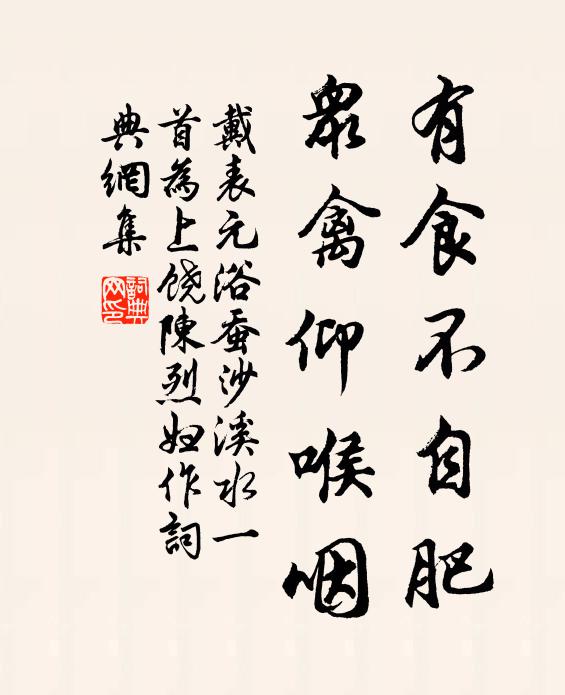 有食不自肥
眾禽仰喉咽
戴表元浴蚕沙溪水一
首為上饶陳烈妇作詞
典網集
詞典
网印